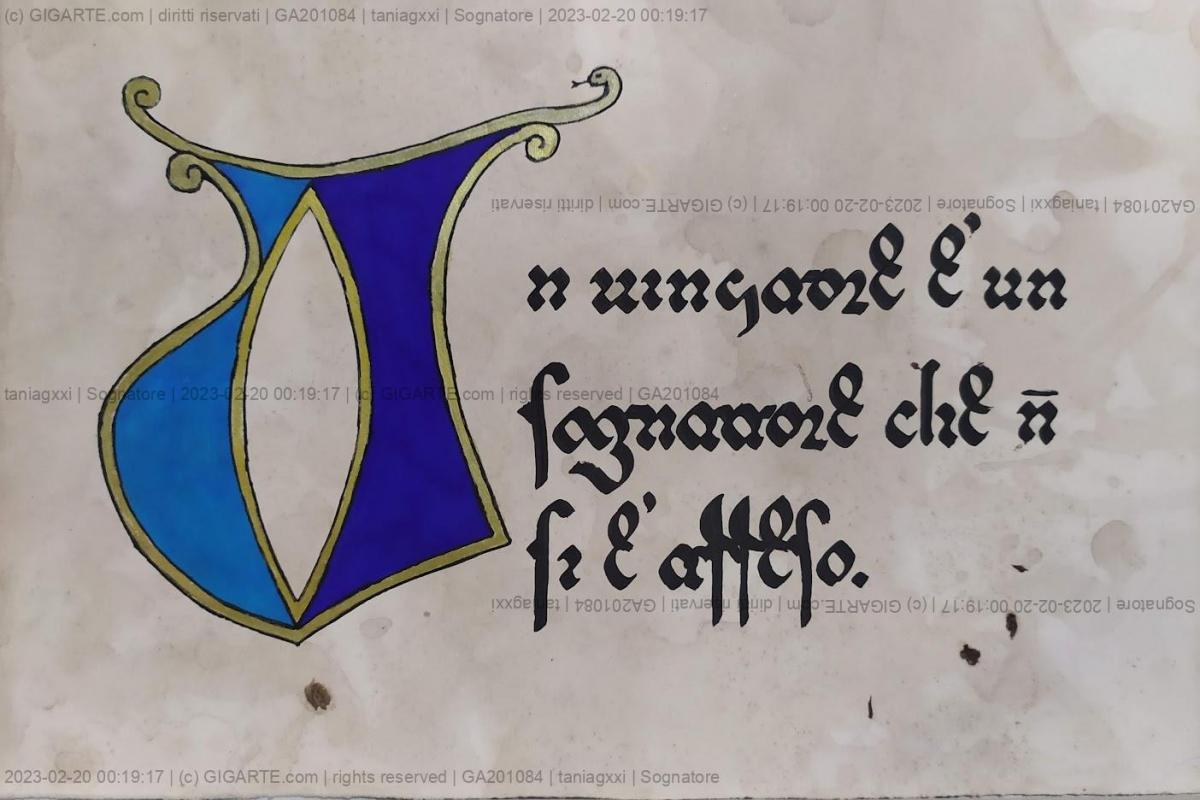 (c) GIGARTE.com | diritti riservati | GA201084 | taniagxxi | Sognatore | 2023-02-20 00:19:17
GA201084 | taniagxxi | Sognatore | 2023-02-20 00:19:17 | (c) GIGARTE.com | diritti riservati
Un uincitore e' un
taniagxxi | Sognatore | 2023-02-20 00:19:17 | (c) GIGARTE.com | rights reserved | GA201084
sognatore che n̄
si e' arreso.
Sognatore | 2023-02-20 00:19:17 | (c) GIGARTE.com | diritti riservati | GA201084 | taniagxxi
2023-02-20 00:19:17 | (c) GIGARTE.com | rights reserved | GA201084 | taniagxxi | Sognatore